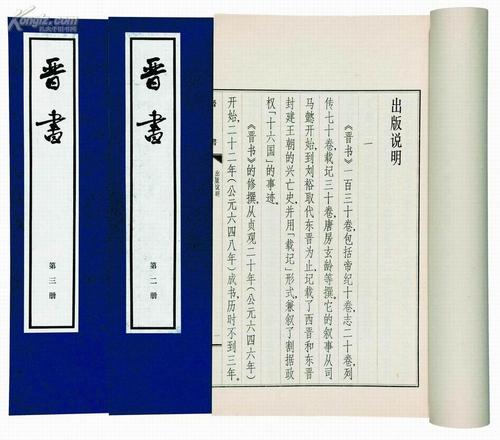 Kongfz.com
孔夫子旧书网
晋書
第三册
晋書
第二册
出版说明
一
《晋书》一百三十卷,包括帝纪十卷,志二十卷,列
传七十卷,载记三十卷,唐房玄龄等撰。它的叙事从司
马懿开始,到刘裕取代东晋为止,记载了西晋和东晋
封建王朝的兴亡史,并用「载记」形式,兼叙了割据政
权「十六国」的事迹。
《晋书》的修撰,从贞观二十年(公元六四六年)
开始,二十二年(公元六四八年)成书,历时不到三年。
出版说明